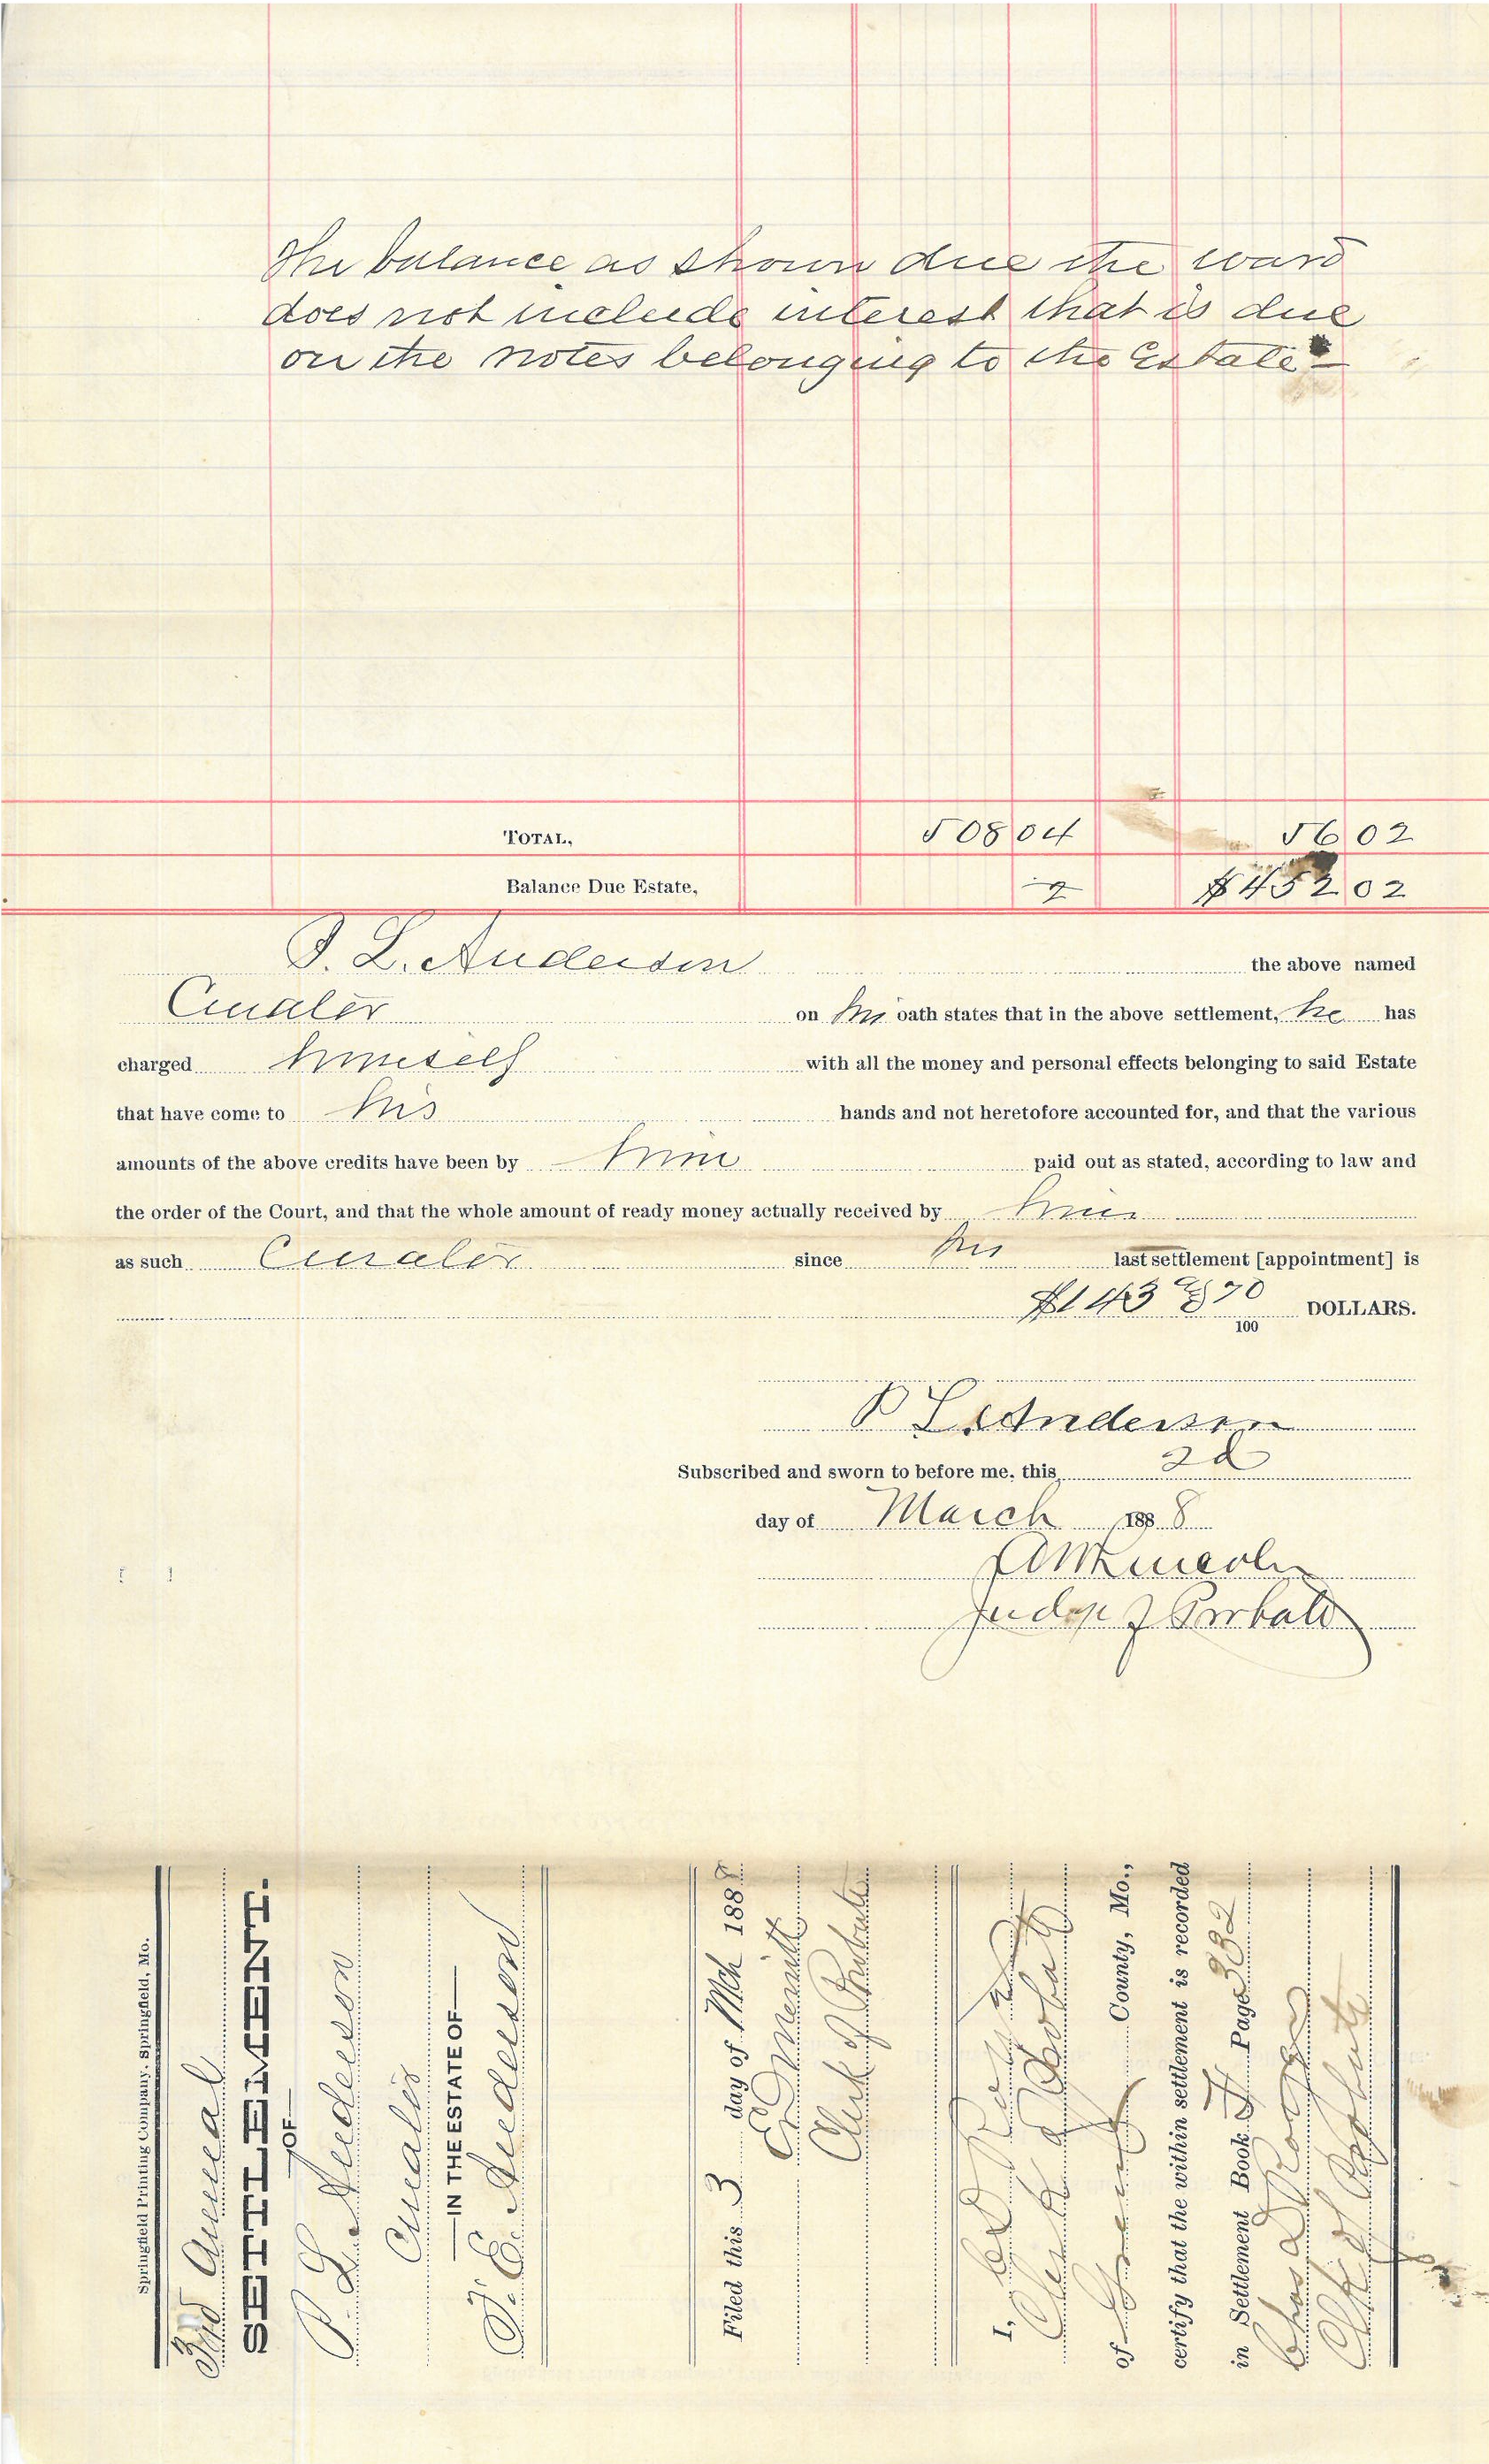 The balance as shown due the ward
does not include interest that is due
on the notes belonging to the Estate
TOTAL, 508 04 56 02
Balance Due Estate, $452 02
P. L. Anderson the above named
Curator on his oath states that in the above settlement, he has
charged himself with all the money and personal effects belonging to said Estate
that have come to his hands and not heretofore accounted for, and that the various
amounts of the above credits have been by him paid out as stated, according to law and
the order of the Court, and that the whole amount of ready money actually received by him
as such Curator since his last settlement [appointment] is
$143 70
100 DOLLARS.
P L Anderson
Subscribed and sworn to before me, this 2d
day of March 1888
Lincoln
Judge of Probate
Springfield Printing Company, Springfield, Mo.
3rd Annual
SETTLEMENT.
OF
P. L. Anderson
Curator
IN THE ESTATE OF
F. E. Anderson
Filed this 3 day of Mch 1888
E D Merritt
Clerk of Probate
I,
Clerk of Probate
of Greene County, Mo.,
certify that the within settlement is recorded
in Settlement Book H Page 332
Chas D
Clk of Probate